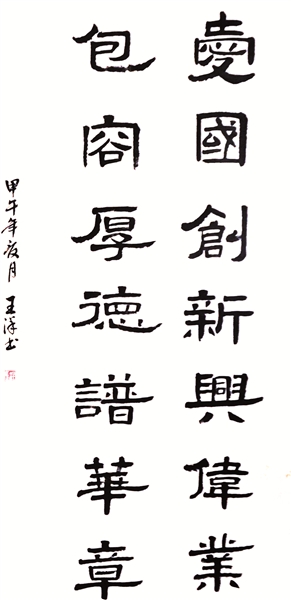 愛國創新興偉業
包容厚德譜華章
甲午年夏月 王洋书